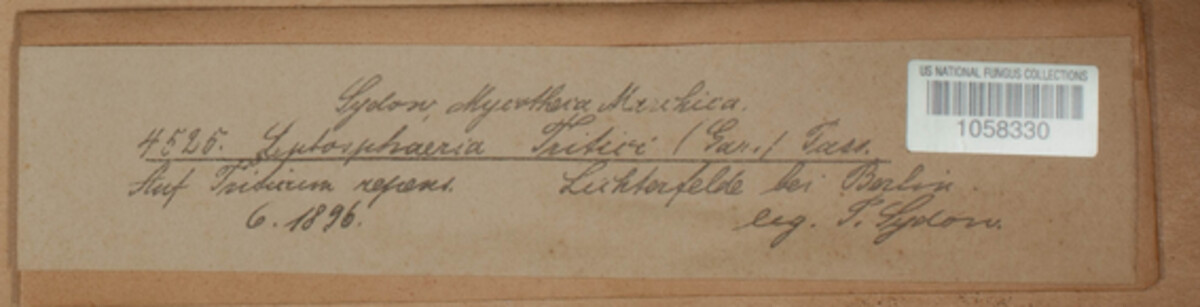 Sydow, Mycotheca Marchica.
4525. Leptosphaeria Tritici (Gar./ Pass.
Auf Triticum repens. Lichterfelde bei Berlin
6. 1896. leg. P. Sydow.
US NATIONAL FUNGUS COLLECTIONS
1058330